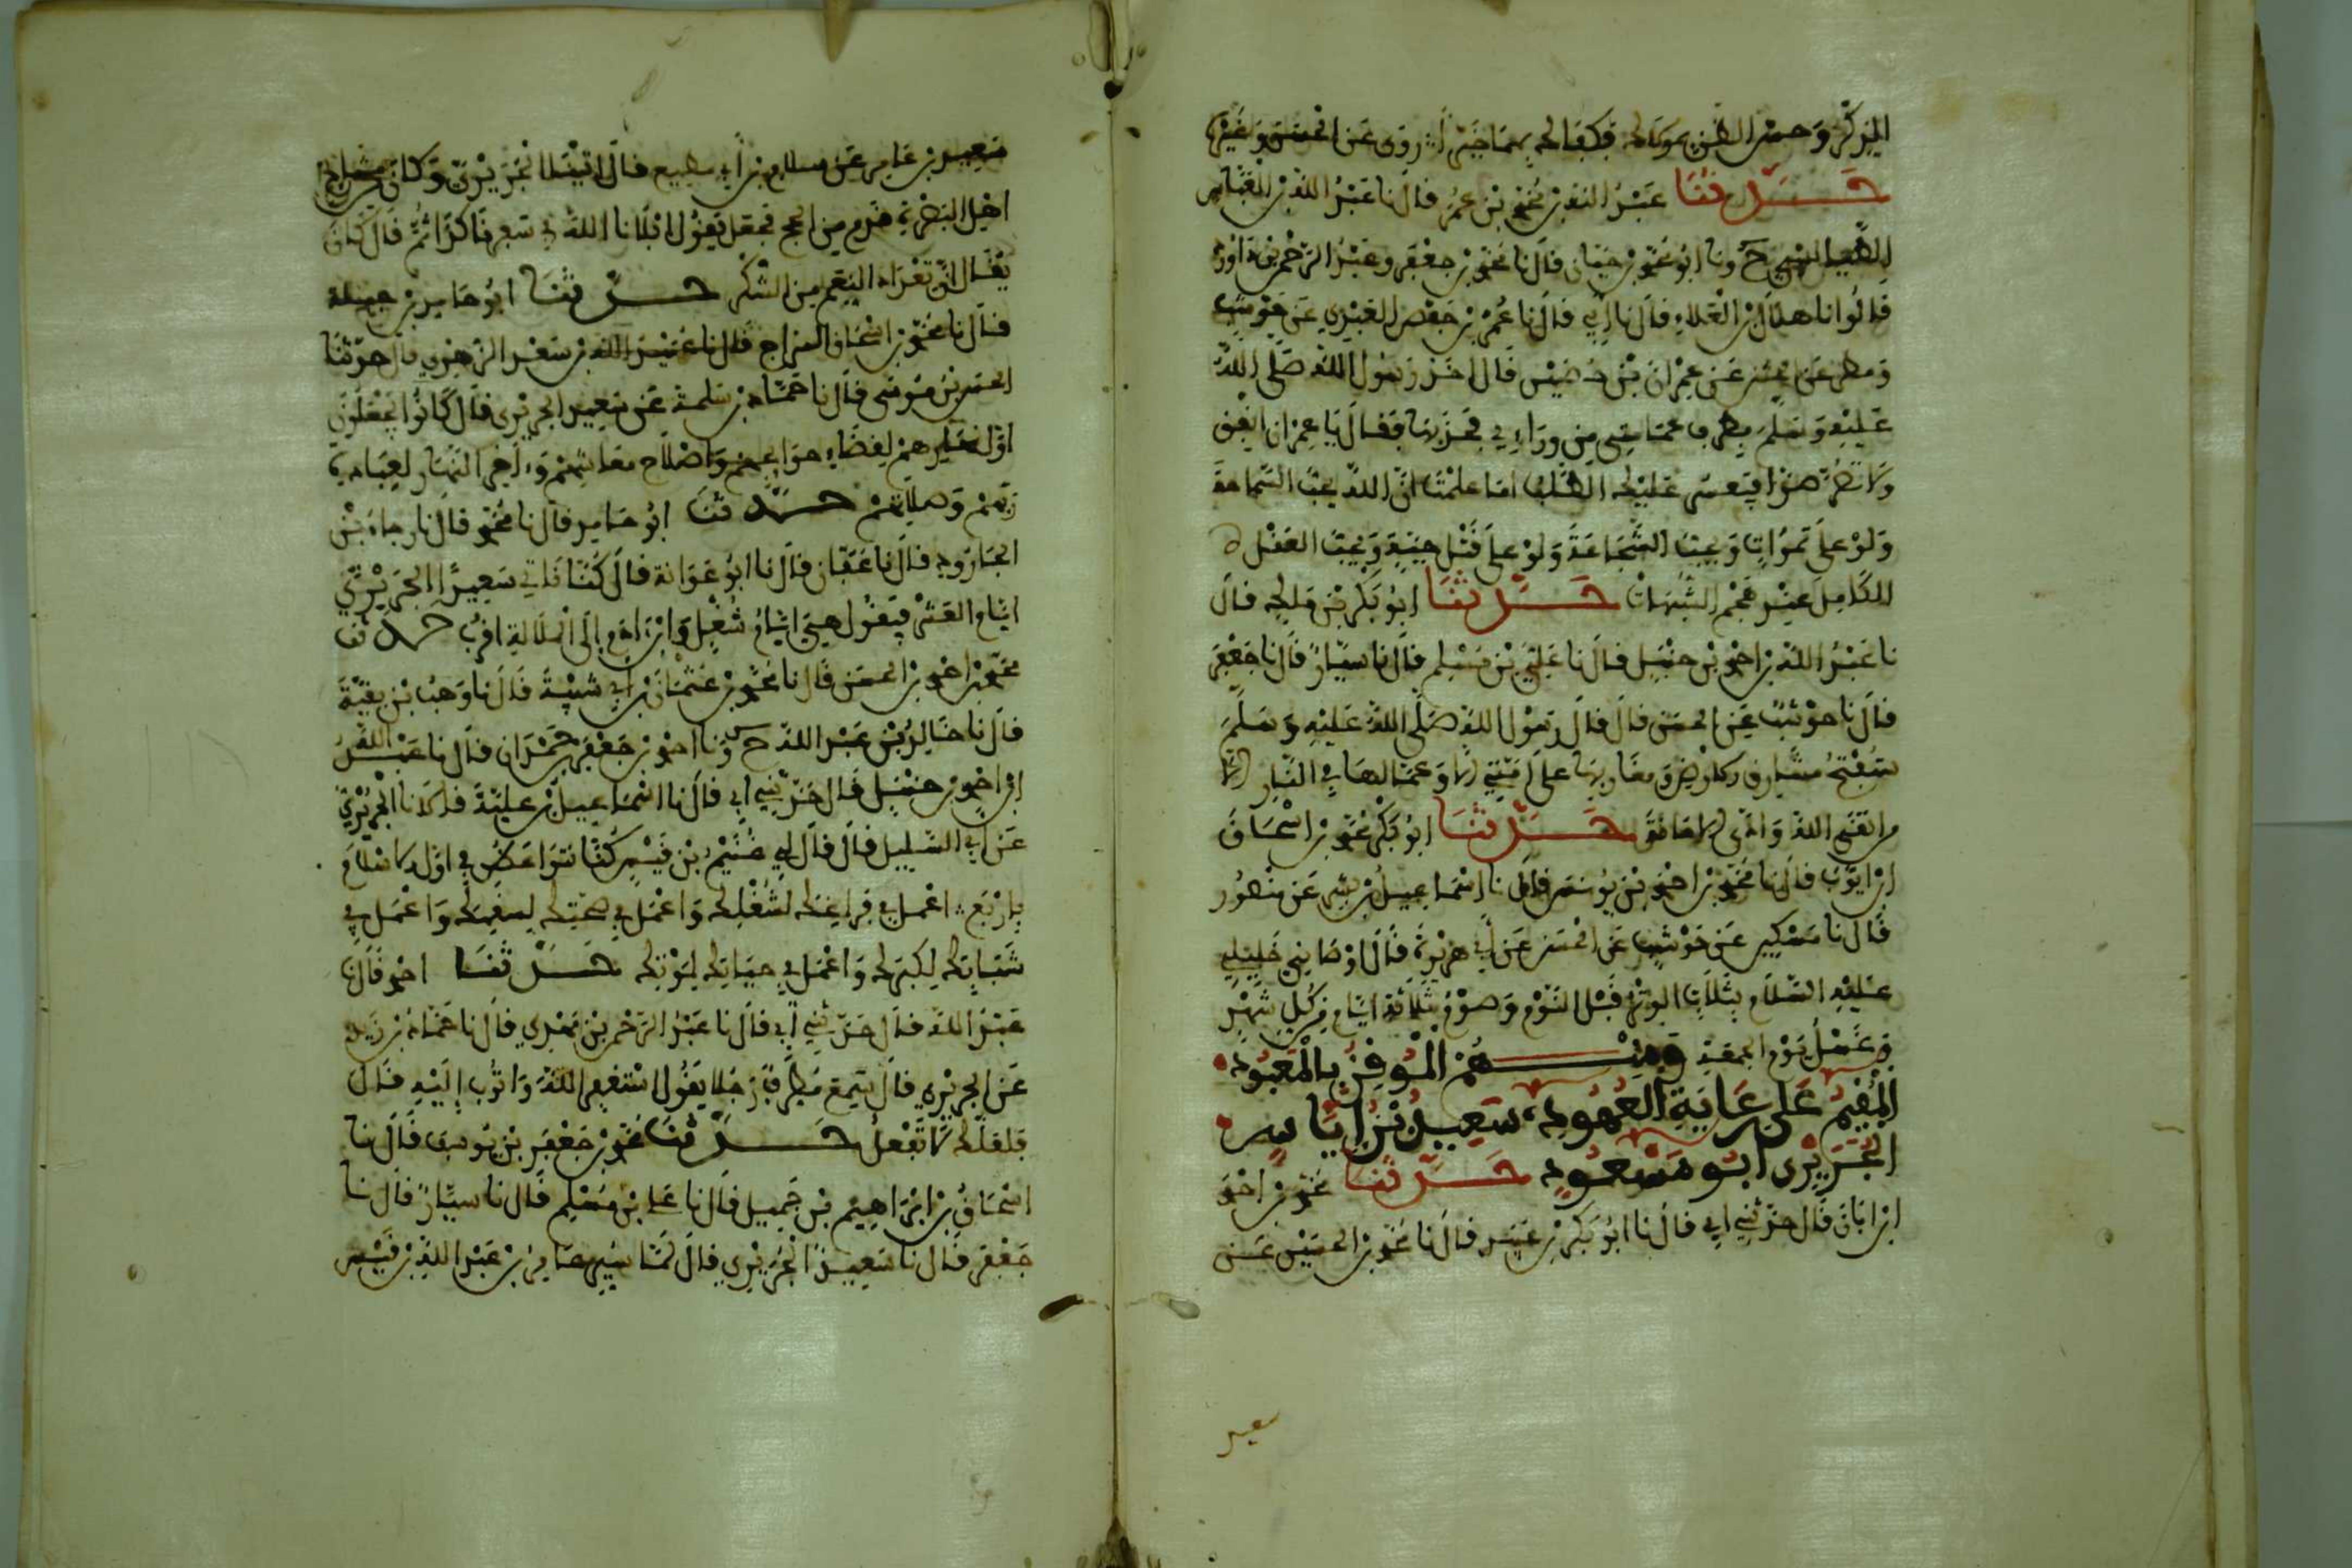 المذكر وحسن الظن بمولاك فكفاك بها خيرا روى عن الحسن وغيره
حدثنا عبد الله بن محمد بن عمر قال نا عبد الله بن العباس
الطيالسي ح ونا ابو محمد بن حيان قال نا محمد بن جعفر وعبد الرحمن بن داود
قالوا نا هلال بن العلاء قال نا أبي قال نا عمر بن حفص العبدي عن حوشب
ومطر عن الحسن عن عمران بن حصين قال اخذ رسول الله صلى الله
عليه وسلم بطرف عمامتي من ورائي فجذبها فقال يا عمران انفق
ولا تصر صرا فيعسر عليك الطلب اما علمت ان الله يحب السماحة
ولو على تمرات ويحب الشجاعة ولو على قتل حية ويحب العقل
الكامل عند هجم الشبهات حدثنا ابو بكر بن ملك قال
نا عبد الله بن احمد بن حنبل قال نا علي بن مسلم قال نا سيار قال نا جعفر
قال نا حوشب عن الحسن قال قال رسول الله صلى الله عليه وسلم
ستفتح مشارق الارض ومغاربها على امتي الا وعمالها في النار الا
من اتقى الله وادى الامانة حدثنا ابو بكر محمد بن اسحاق
ابن ايوب قال نا محمد بن احمد بن يونس قال نا اسماعيل بن بشر عن منصور
قال نا مسكين عن حوشب عن الحسن عن أبي هريرة قال اوصاني خليلي
عليه السلام بثلاث الوتر قبل النوم وصوم ثلاثة ايام من كل شهر
وغسل يوم الجمعة ومنهم الموفي بالمعبود
المقيم على رعاية العهود، سعيد بن إياس
الجريري ابو مسعود حدثنا محمد بن احمد
ابن ابان قال حدثني ابي قال نا ابو بكر بن عبيد قال نا محمد بن الحسين عن
سعيد
سعيد بن عامر عن سلام بن أبي مطيع قال اتينا الجريري وكان من مشايخ
اهل البصرة قدم من الحج فجعل يقول ابلانا الله في سفرنا كذا ثم قال كان
يقال ان تعداد النعم من الشكر حدثنا ابو حامد بن جبلة
قال نا محمد بن اسحاق السراج قال نا عبيد الله بن سعد الزهري قال حدثنا
الحسن بن موسى قال نا حماد بن سلمة عن سعيد الجريري قال كانوا يجعلون
اول نهارهم لقضاء حوائجهم واصلاح معائشهم وءاخر النهار لعبادة
ربهم وصلاتهم حدثنا ابو حامد قال نا محمد قال نا رجاء بن
الجارود قال نا عفان قال نا ابو عوانة قال كنا ناتي سعيدا الجريري
ايام العشر فيقول هي ايام شغل وابن ادم الى الملالة اقرب حدثنا
محمد بن احمد بن الحسن قال نا محمد بن عثمان بن أبي شيبة قال نا وهب بن بقية
قال نا خالد بن عبد الله ح ونا احمد بن جعفر بن حمدان قال نا عبد الله
ابن احمد بن حنبل قال حدثني أبي قال نا اسماعيل بن علية قالا نا الجريري
عن أبي السليل قال قال لي غنيم بن قيس كنا نتواعظ في اول الاسلام
باربع، اعمل في فراغك لشغلك واعمل في صحتك لسقمك واعمل في
شبابك لكبرك واعمل في حياتك لموتك حدثنا احمد قال نا
عبد الله قال حدثني أبي قال نا عبد الرحمن بن مهدي قال نا حماد بن زيد
عن الجريري قال سمع مطرف رجلا يقول استغفر الله واتوب إليه قال
فلعلك لا تفعل حدثنا محمد بن جعفر بن يوسف قال نا
اسحاق بن ابراهيم بن جميل قال نا علي بن مسلم قال نا سيار قال نا
جعفر قال نا سعيد الجريري قال لما سير عامر بن عبد الله بن قيس